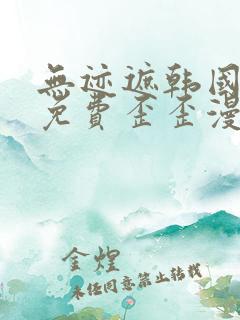 無迹遮韩国
免費歪歪漫
金煌
未经同意禁止转载